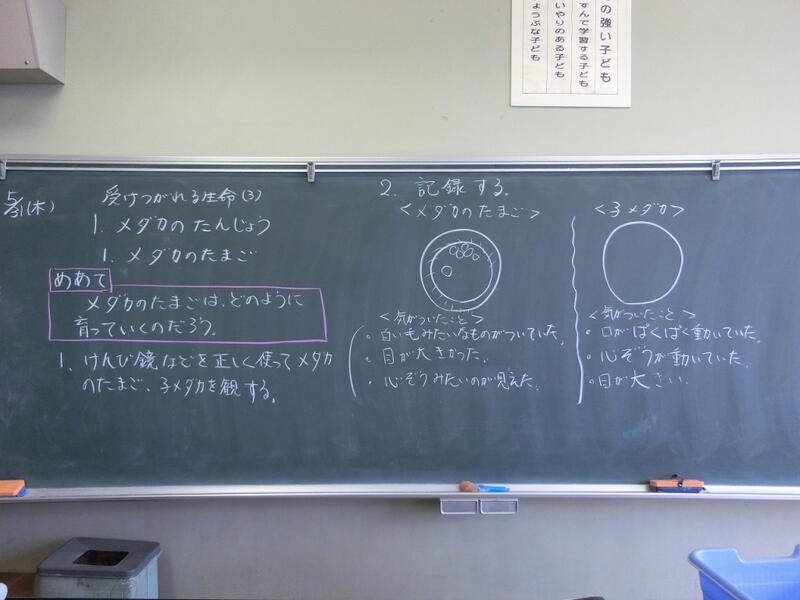 の強い子ども
すんで学習する子ども
いやりのある子ども
ょうぶな子ども
5/31(木)
受けつがれる生命(3)
1. メダカのたんじょう
1. メダカのたまご
めあて
メダカのたまごは、どのように
育っていくのだろう。
1. けんび鏡などを正しく使ってメダカ
のたまご、子メダカを観する。
2. 記録する。
<メダカのたまご>
<気がついたこと>
・白い毛みたいなものがついていた。
・目が大きかった。
・心ぞうみたいのが見えた。
<子メダカ>
<気がついたこと>
・口がぱくぱく動いていた。
・心ぞうが動いていた。
・目が大きい。